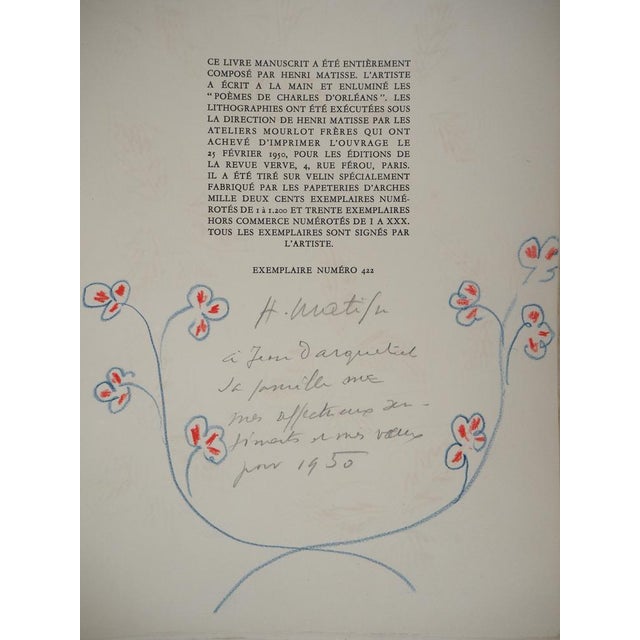 CE LIVRE MANUSCRIT A ÉTÉ ENTIÈREMENT
COMPOSÉ PAR HENRI MATISSE. L'ARTISTE
A ÉCRIT A LA MAIN ET ENLUMINÉ LES
"POÈMES DE CHARLES D'ORLÉANS". LES
LITHOGRAPHIES ONT ÉTÉ EXÉCUTÉES SOUS
LA DIRECTION DE HENRI MATISSE PAR LES
ATELIERS MOURLOT FRÈRES QUI ONT
ACHEVÉ D'IMPRIMER L'OUVRAGE LE
25 FÉVRIER 1950, POUR LES ÉDITIONS DE
LA REVUE VERVE, 4, RUE FÉROU, PARIS.
IL A ÉTÉ TIRÉ SUR VELIN SPÉCIALEMENT
FABRIQUÉ PAR LES PAPETERIES D'ARCHES
MILLE DEUX CENTS EXEMPLAIRES NUMÉ-
ROTÉS DE 1 à 1.200 ET TRENTE EXEMPLAIRES
HORS COMMERCE NUMÉROTÉS DE I A XXX.
TOUS LES EXEMPLAIRES SONT SIGNÉS PAR
L'ARTISTE.
EXEMPLAIRE NUMÉRO 422
H. Matisse
à Jean
sa famille
mes affectueux sen-
timents et mes vœux
pour 1950